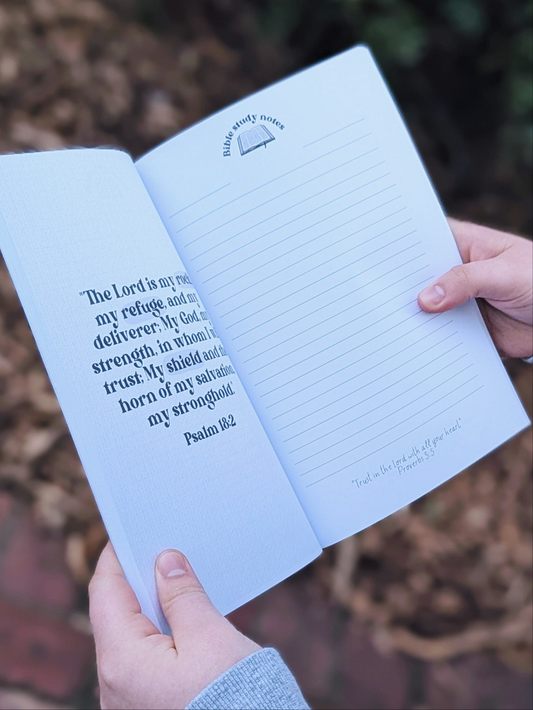 "The Lord is my rock
my refuge, and my
deliverer; My God, my
strength, in whom I
trust; My shield and the
horn of my salvation,
my stronghold."
Psalm 18:2
Bible study notes
"Trust in the Lord with all your heart."
Proverbs 3:5